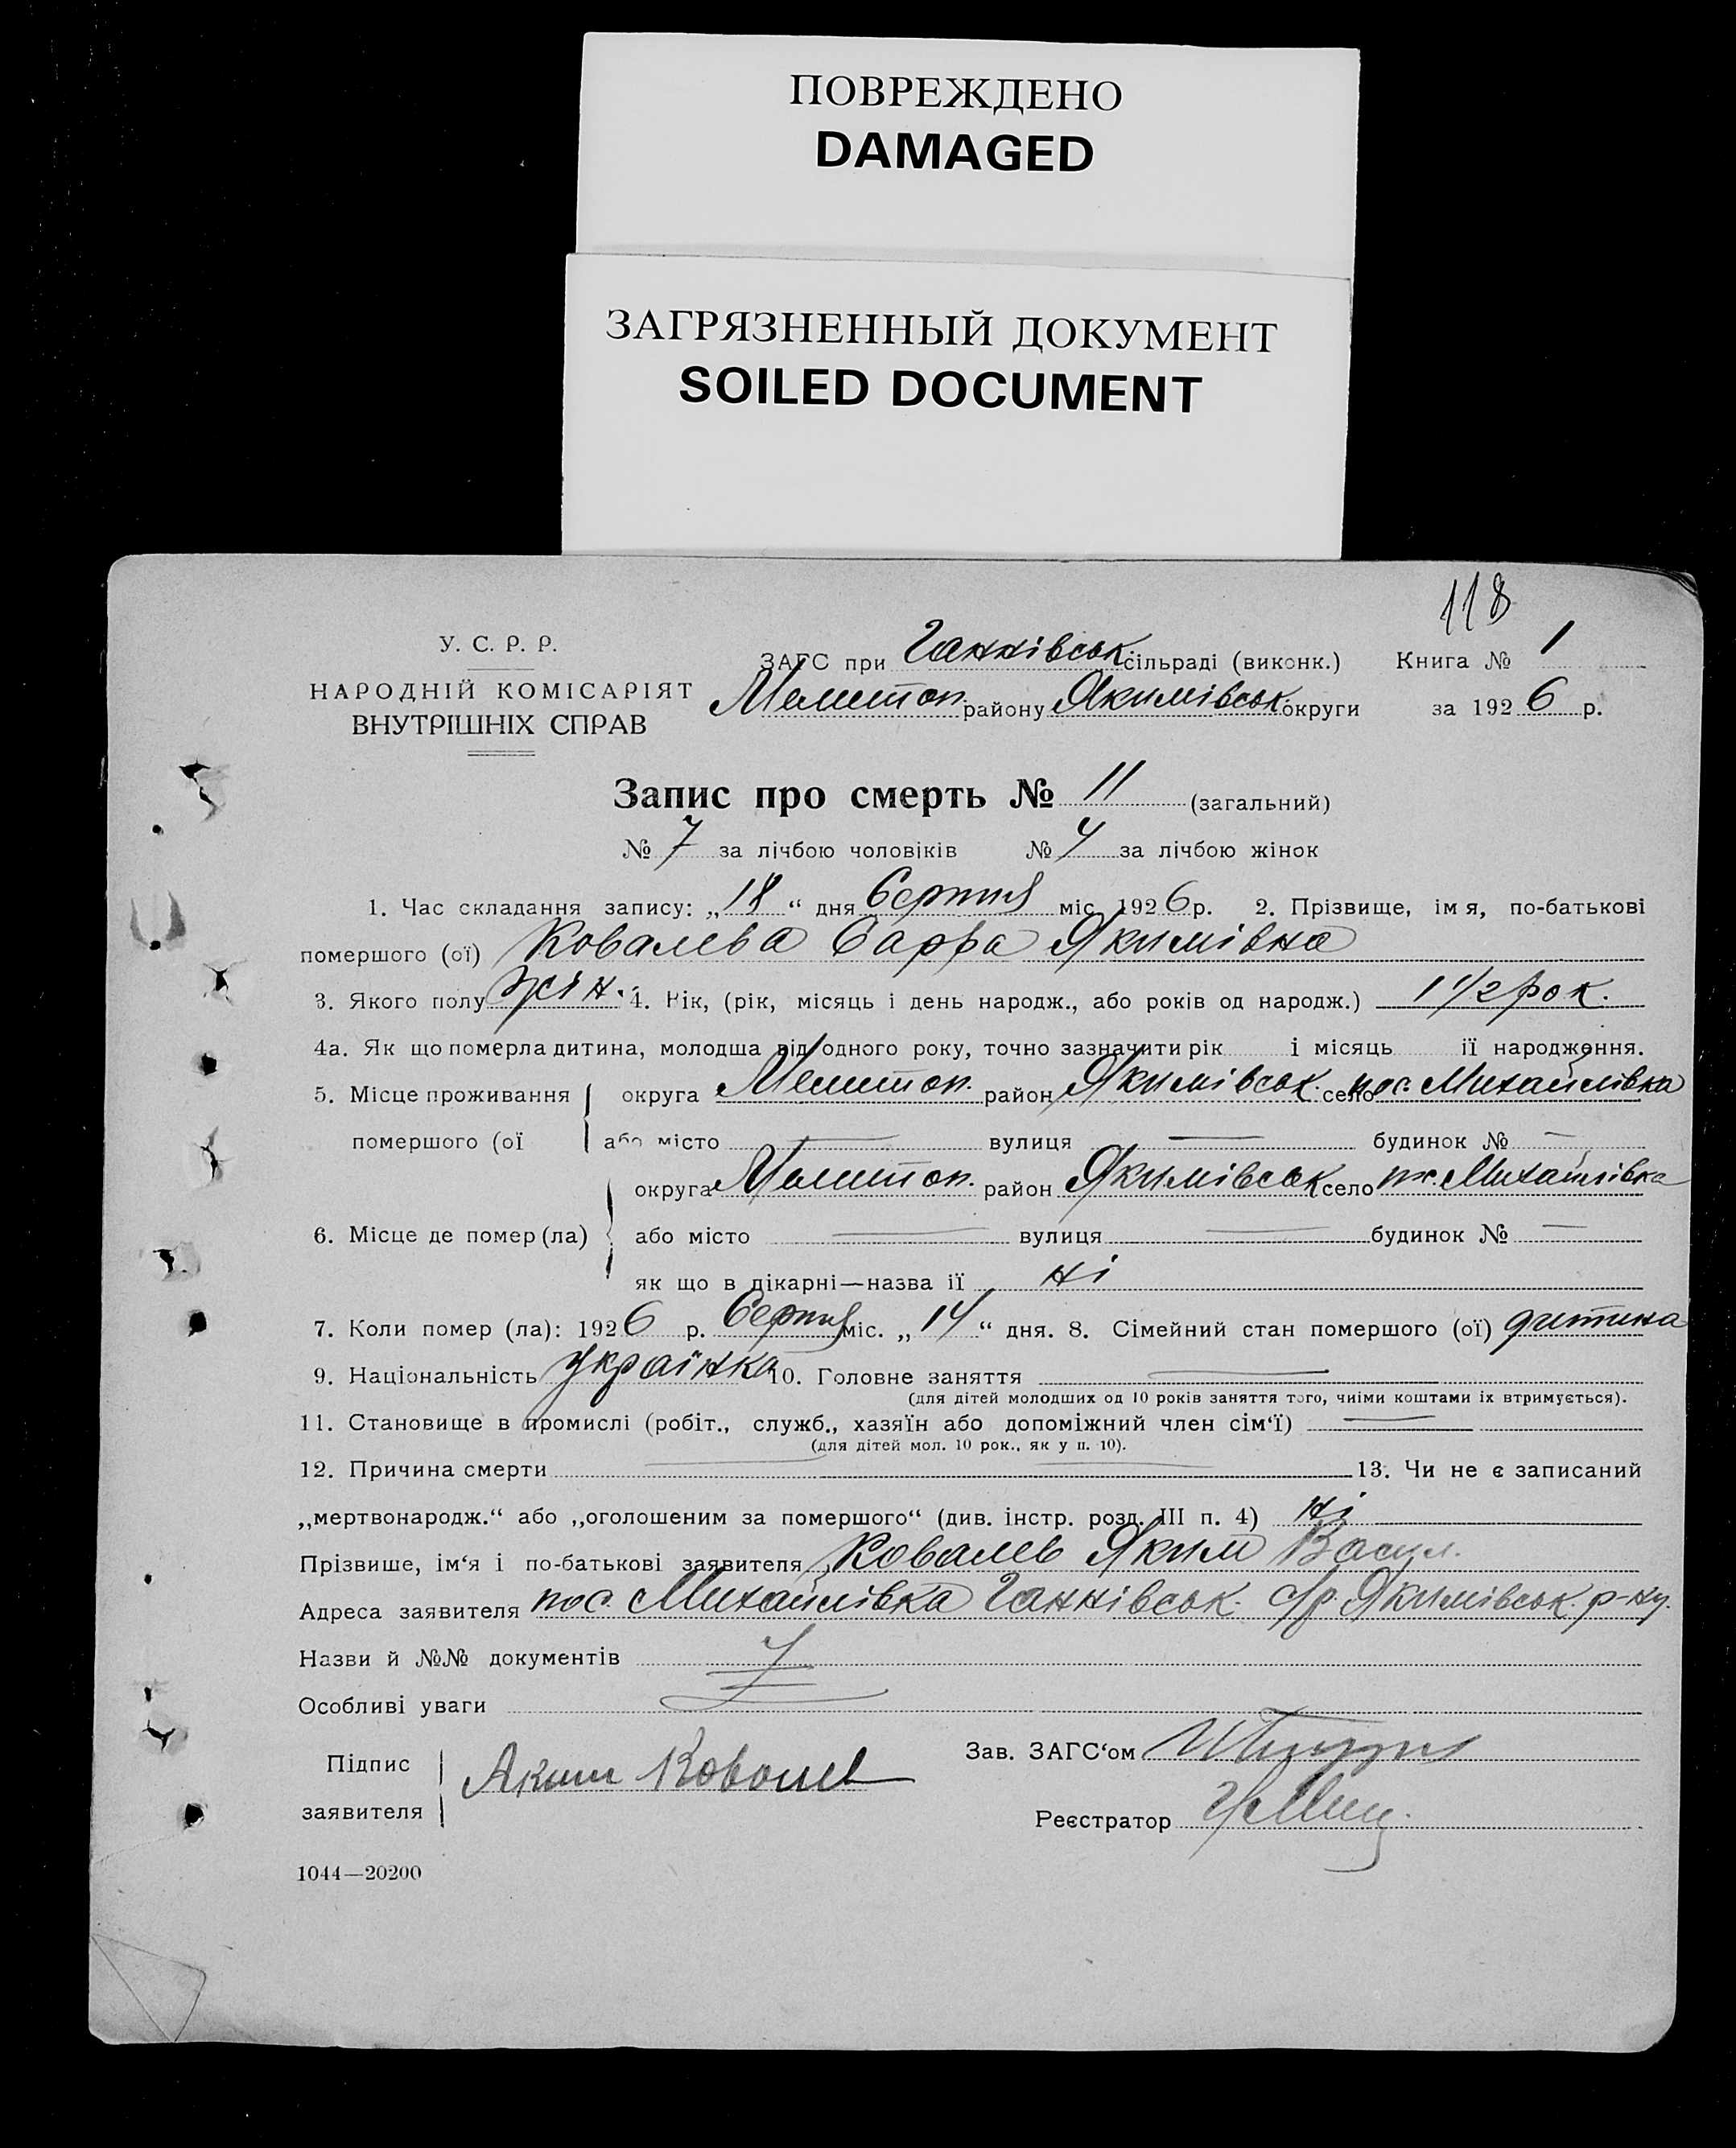 ПОВРЕЖДЕНО
DAMAGED
ЗАГРЯЗНЕННЫЙ ДОКУМЕНТ
SOILED DOCUMENT
118
У. С. Р. Р.
НАРОДНІЙ КОМІСАРІЯТ
ВНУТРІШНІХ СПРАВ
ЗАГС при Ганнівськ. сільраді (виконк.) Книга № 1
Мелитоп. району Якимівськ. округи за 1926 р.
Запис про смерть № 11 (загальний)
№ 7 за лічбою чоловіків № 4 за лічбою жінок
1. Час складання запису: „18“ дня Серпня міс. 1926 р. 2. Прізвище, імя, по-батькові
помершого (ої) Ковалева Сарра Якимівна
3. Якого полу жін. 4. Вік, (рік, місяць і день народж., або років од народж.) 1 1/2 рок.
4а. Як що померла дитина, молодша від одного року, точно зазначити рік і місяць її народження.
5. Місце проживання округа Мелитоп. район Якимівськ. село пос. Михайлівка
помершого (ої або місто — вулиця — будинок № —
округа Мелитоп. район Якимівськ село пос. Михайлівка
6. Місце де помер (ла) або місто — вулиця — будинок № —
як що в лікарні—назва її ні
7. Коли помер (ла): 1926 р. Серпня міс. „14“ дня. 8. Сімейний стан помершого (ої) дитина
9. Національність Українка 10. Головне заняття —
(для дітей молодших од 10 років заняття того, чиїми коштами їх втримується).
11. Становище в промислі (робіт., служб., хазяїн або допоміжний член сім‘ї) —
(для дітей мол. 10 рок., як у п. 10).
12. Причина смерти — 13. Чи не є записаний
„мертвонародж.“ або „оголошеним за помершого“ (див. інстр. розд. III п. 4) ні
Прізвише, ім‘я і по-батькові заявителя Ковалев Яким Васил.
Адреса заявителя пос. Михайлівка Ганнівськ. с/р. Якимівськ. р-ну.
Назви й №№ документів
Особливі уваги
Підпис
заявителя Аким Ковалев
Зав. ЗАГС‘ом
Реєстратор
1044—20200